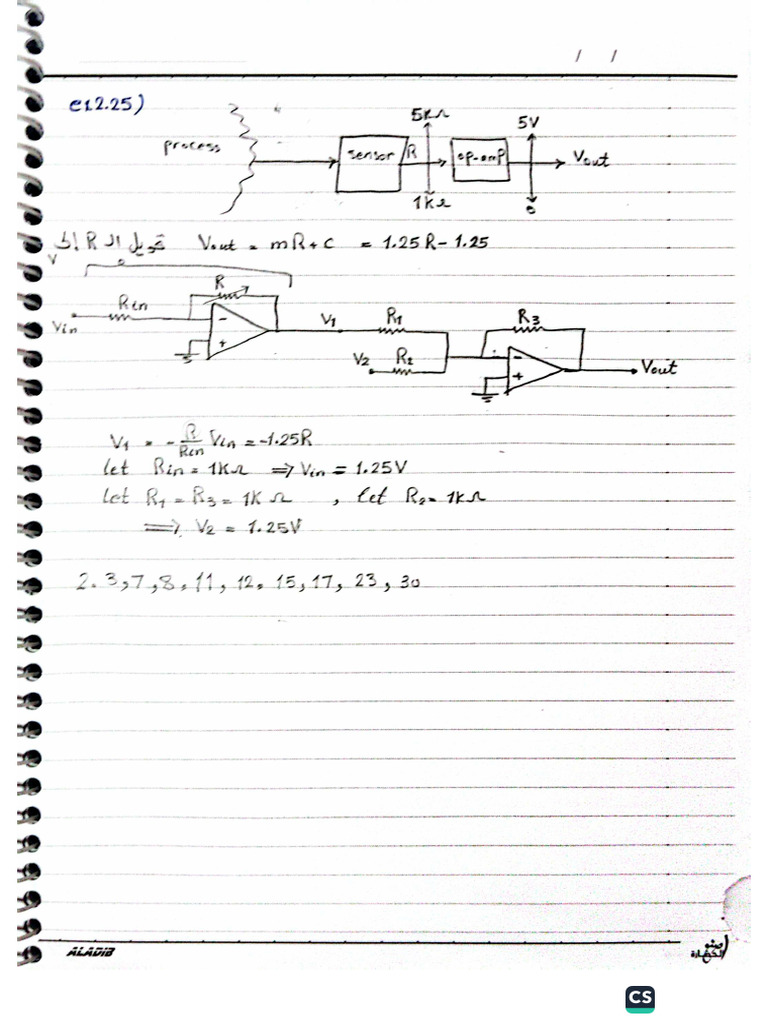 / /
e1.2.25)
process
sensor
R
5KΩ
1kΩ
op-amp
5V
0
Vout
تحويل ال R إلى V
Vout = mR + c = 1.25R - 1.25
Vin
Rin
R
V1
R1
V2
R2
R3
Vout
V1 = - R/Rin Vin = -1.25R
let Rin = 1KΩ ⇒ Vin = 1.25V
let R1 = R3 = 1K Ω , let R2 = 1KΩ
⇒ V2 = 1.25V
2. 3, 7, 8, 11, 12, 15, 17, 23, 30
ALADIB
CS